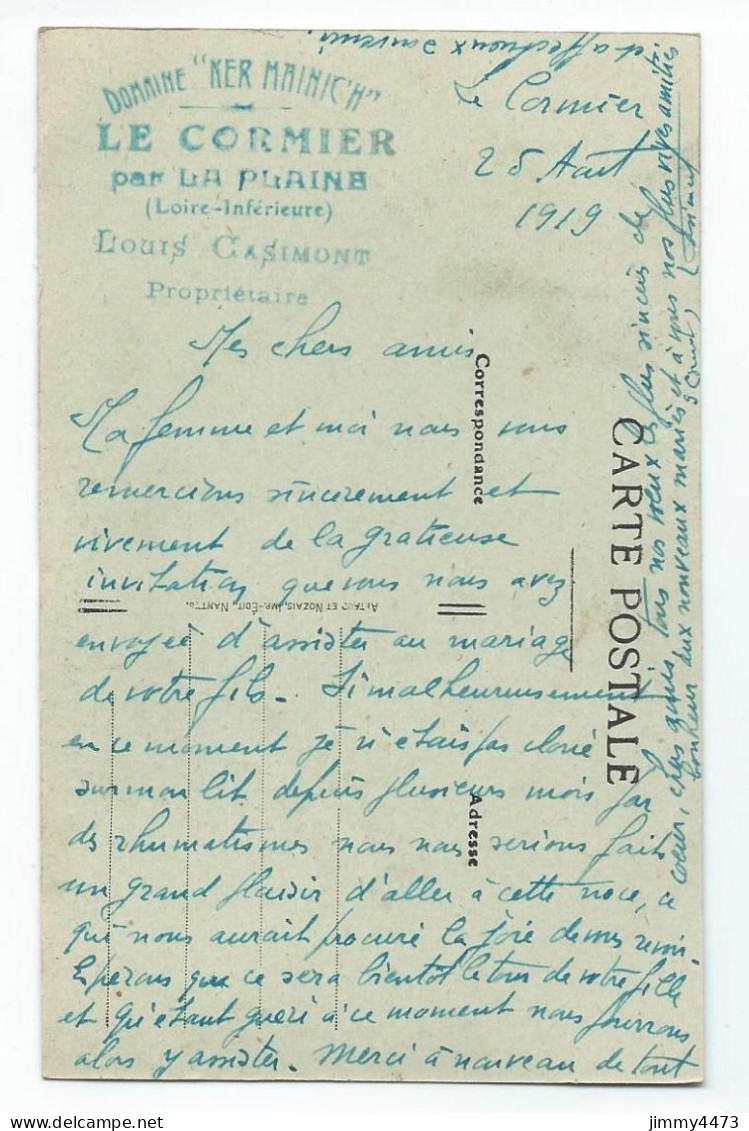 DOMAINE "KER MAINIC'H"
LE CORMIER
par LA PLAINE
(Loire-Inférieure)
LOUIS GASIMONT
Propriétaire
Le Cormier
25 Août
1919
Mes chers amis
Ma femme et moi nous vous
remercions sincèrement et
vivement de la gracieuse
invitation que vous nous avez
envoyée d'assister au mariage
de votre fils. Si malheureusement
en ce moment je n'étais pas cloué
sur mon lit depuis plusieurs mois par
des rhumatismes nous nous serions faits
un grand plaisir d'aller à cette noce, ce
qui nous aurait procuré la joie de vous revoir.
Espérons que ce sera bientôt le tour de votre fille
et qu'étant guéri à ce moment nous pourrons
alors y assister. Merci à nouveau de tout
coeur, chers amis, tous nos voeux les plus sincères de
bonheur aux nouveaux mariés et à vous nos plus vives amitiés
et affectueux souvenir.
CARTE POSTALE
Correspondance
Adresse
ET NOZAIS, IMP.-ÉDIT. NANTES
jimmy4473